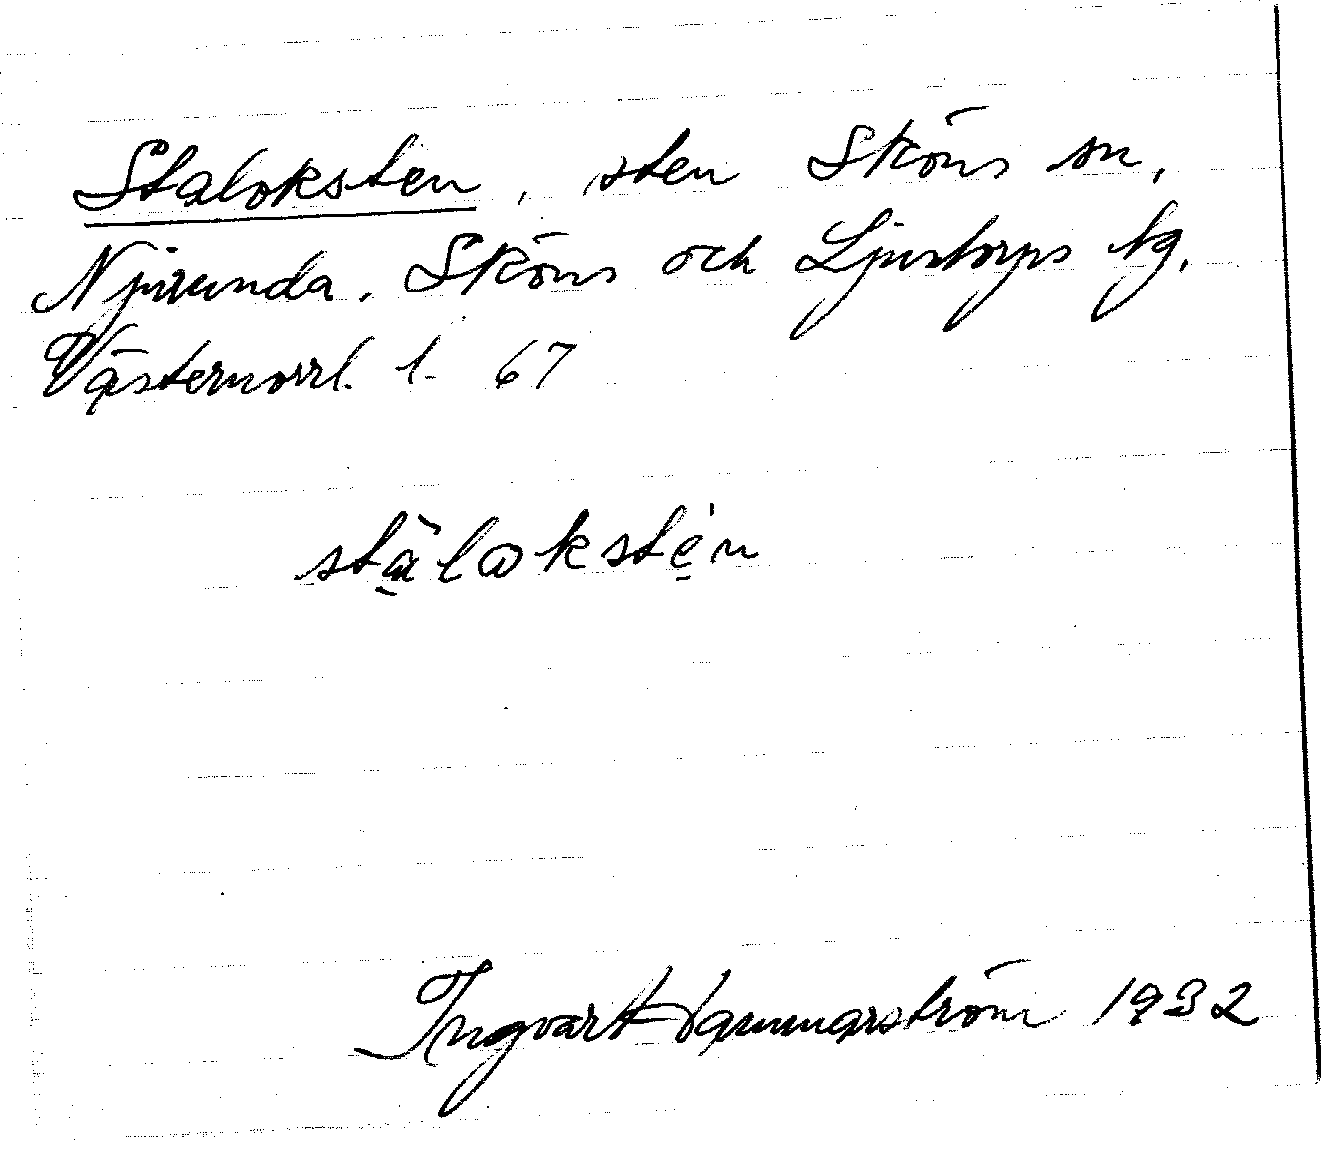 Staloksten, sten Sköns sn,
Njurunda, Sköns och Ljustorps tg,
Västernorrl. l. 67
stàlokstén
Ingvar Hammarström 1932